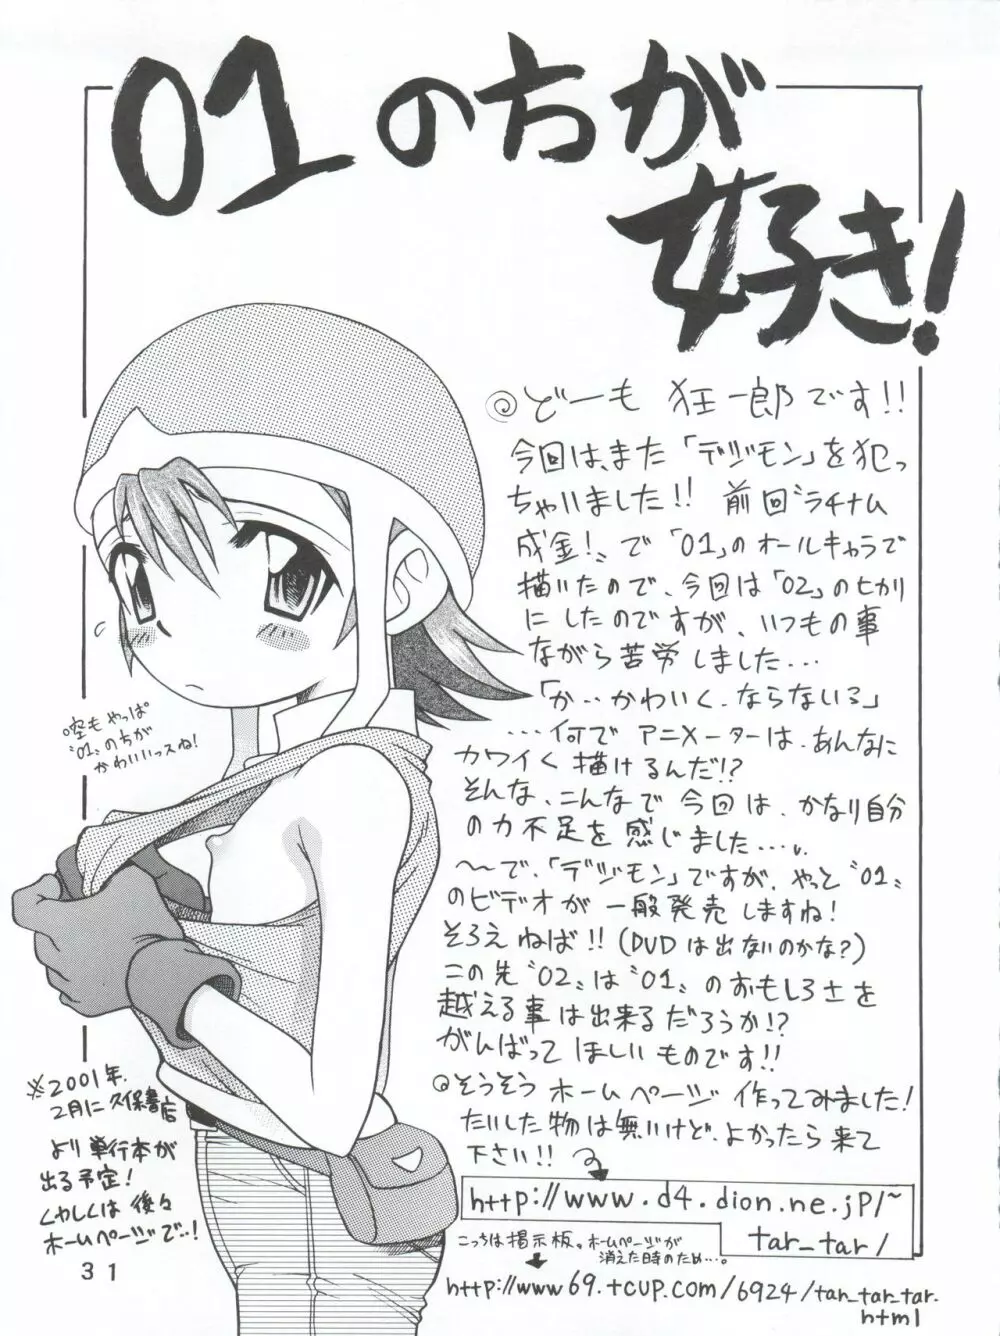 01のちが
好き!
◎どーも 狂一郎です!!
今回は、また「デジモン」を犯っ
ちゃいました!! 前回〝ラチナム
成金!〟で「01」のオールキャラで
描いたので、今回は「02」のヒカリ
にしたのですが、いつもの事
ながら苦労しました…
「か‥かわいく、ならないろ」
…何で アニメーターは、あんなに
カワイく描けるんだ!?
そんな、こんなで今回は、かなり自分
の力不足を感じました…。
〜で、「デジモン」ですが、やっと〝01〟
のビデオが一般発売しますね!
そろえねば!!(DVDは出ないのかな?)
この先〝02〟は〝01〟のおもしろさを
越える事は出来るだろうか!?
がんばってほしいものです!!
◎そうそうホームページ作ってみました!
たいした物は無いけど、よかったら来て
下さい!!
http://www.d4.dion.ne.jp/~
tar_tar/
こっちは掲示板。ホームページが
消えた時のため…。
http://www69.tcup.com/6924/tar_tar_tar.
html
空もやっぱ
〝01〟のちが
かわいいっスね!
※2001年、
2月に久保書店
より単行本が
出る予定!
くわしくは後々
ホームページで‥!
31